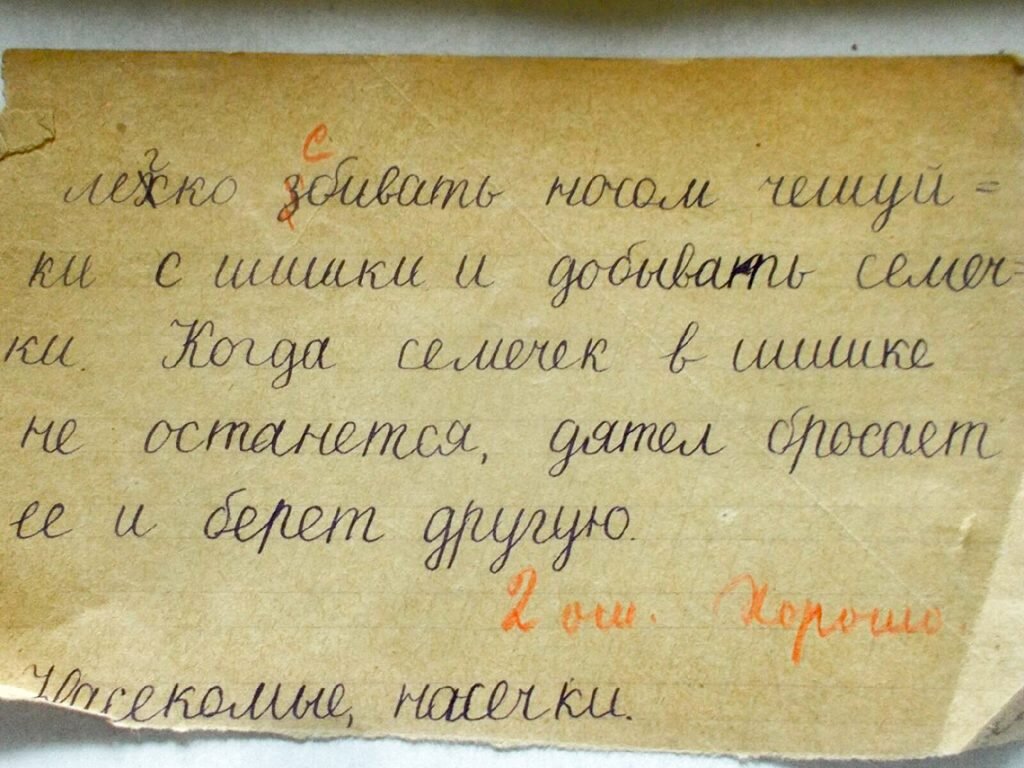 легко збивать носом чешуй=
ки с шишки и добывать семеч=
ки. Когда семечек в шишке
не останется, дятел бросает
ее и берет другую.
2 ош. Хорошо
Насекомые, насечки.